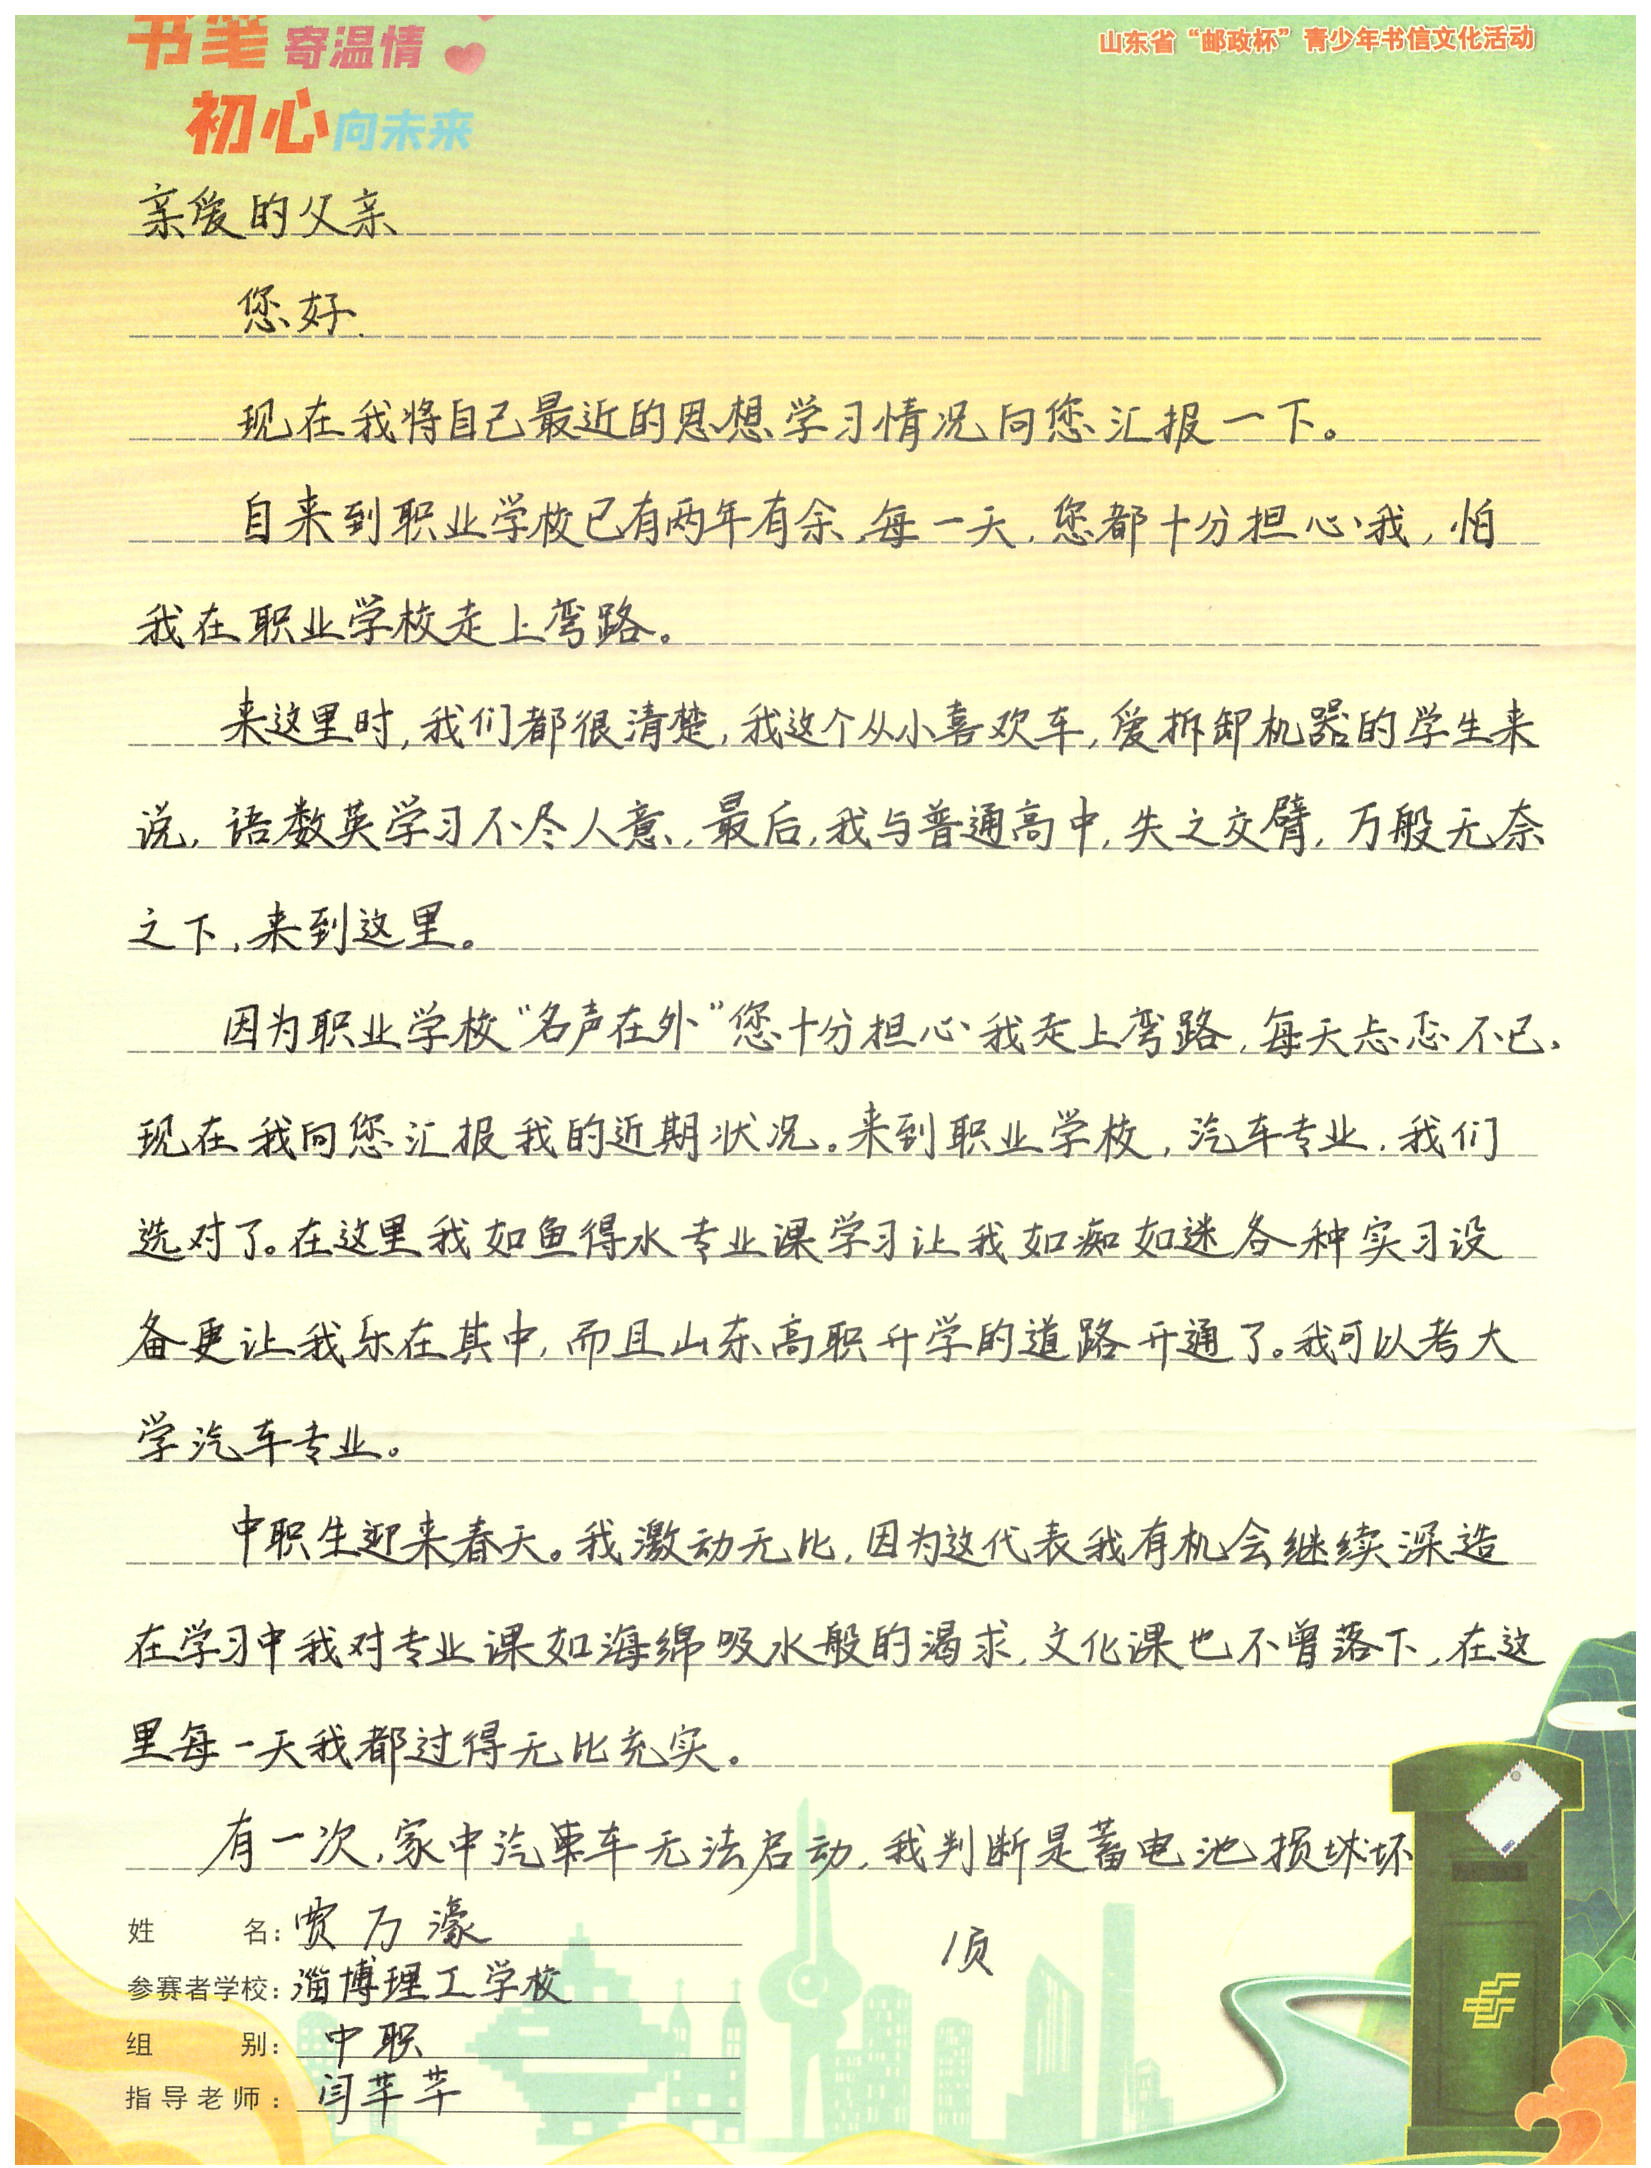 书笔寄温情
山东省“邮政杯”青少年书信文化活动
初心向未来
亲爱的父亲
您好.
现在我将自己最近的思想学习情况向您汇报一下。
自来到职业学校已有两年有余,每一天,您都十分担心我,怕
我在职业学校走上弯路。
来这里时,我们都很清楚,我这个从小喜欢车,爱拆卸机器的学生来
说,语数英学习不尽人意,最后,我与普通高中,失之交臂,万般无奈
之下,来到这里。
因为职业学校“名声在外”您十分担心我走上弯路,每天忐忑不已、
现在我向您汇报我的近期状况。来到职业学校,汽车专业,我们
选对了。在这里我如鱼得水专业课学习让我如痴如迷各种实习设
备更让我乐在其中,而且山东高职升学的道路开通了。我可以考大
学汽车专业。
中职生迎来春天。我激动无比,因为这代表我有机会继续深造
在学习中我对专业课如海绵吸水般的渴求,文化课也不曾落下,在这
里每一天我都过得无比充实。
有一次,家中汽车无法启动,我判断是蓄电池损坏
姓名:贾乃濠
1页
参赛者学校:淄博理工学校
组别:中职
指导老师:闫芊芊